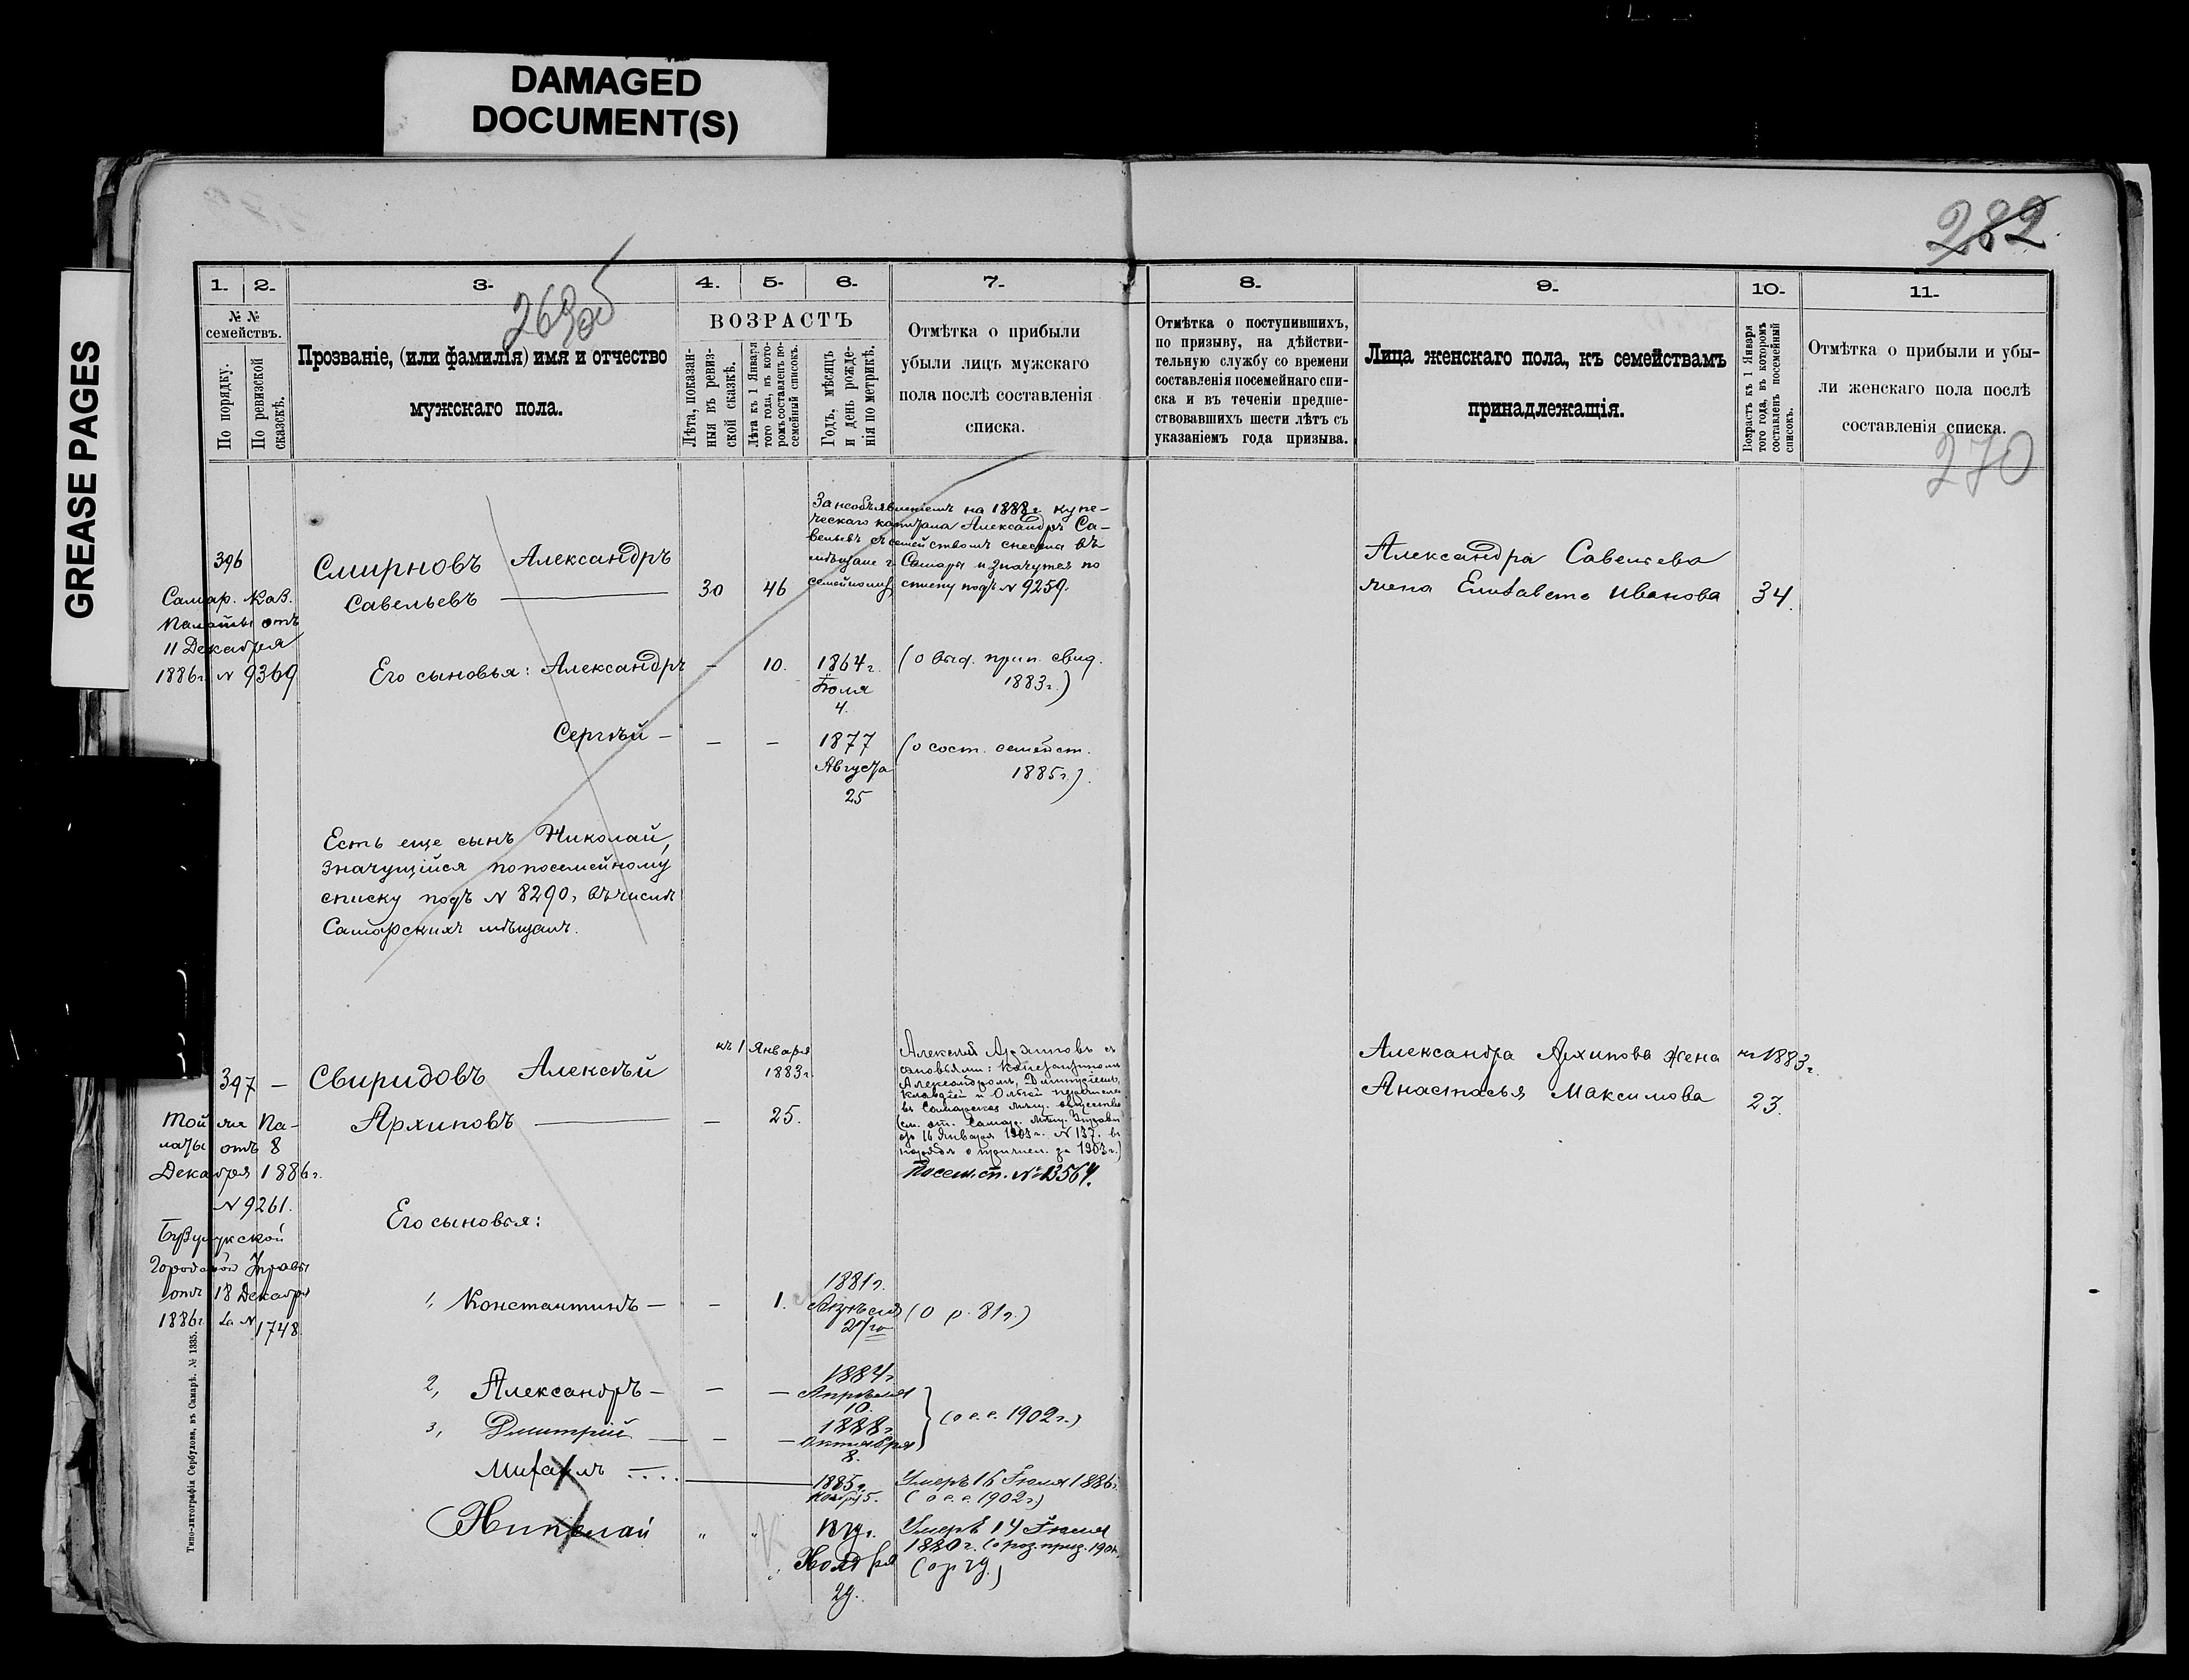 DAMAGED
DOCUMENT(S)
GREASE PAGES
282
269 об
270
1. 2. 3. 4. 5. 6. 7. 8. 9. 10. 11.
№ №
семействъ.
По порядку.
По ревизской
сказскѣ.
Прозваніе, (или фамилія) имя и отчество
мужскаго пола.
ВОЗРАСТЪ
Лѣта, показан-
ныя въ ревиз-
ской сказкѣ.
Лѣта къ 1 Января
того года, въ кото-
ромъ составленъ по-
семейный списокъ.
Годъ, мѣсяцъ
и день рожде-
нія по метрикѣ.
Отмѣтка о прибыли
убыли лицъ мужскаго
пола послѣ составленія
списка.
Отмѣтка о поступившихъ,
по призыву, на дѣйстви-
тельную службу со времени
составленія посемейнаго спи-
ска и въ теченіи предше-
ствовавшихъ шести лѣтъ съ
указаніемъ года призыва.
Лица женскаго пола, къ семействамъ
принадлежащія.
Возрастъ къ 1 Января
того года, въ которомъ
составленъ посемейный
списокъ.
Отмѣтка о прибыли и убы-
ли женскаго пола послѣ
составленія списка.
396
Самар. Каз.
Палаты отъ
11 Декабря
1886г. № 9369
Смирновъ Александръ
Савельевъ — 30 46
За необъявленіемъ на 1888г. купе-
ческаго капитала Александръ Са-
вельевъ съ семействомъ снесенъ въ
мѣщане г. Самары и значутся по
семейному списку подъ № 9259.
Александра Савельева
жена Елизавета Иванова 34.
Его сыновья: Александръ – 10. 1864г.
Іюля
4.
(о выд. прип. свид.
1883г.)
Сергѣй – – – 1877
Августа
25
(о сост. семейст.
1885г.).
Есть еще сынъ Николай,
значущійся по посемейному
списку подъ № 8290, въ числѣ
Самарскихъ мѣщанъ.
397 –
Той же Па-
латы отъ 8
Декабря 1886г.
№ 9261.
Бузулукской
Городской Управы
отъ 18 Декабря
1886г. за №
1748
Свиридовъ Алексѣй
Архиповъ — –
къ 1 Января
1883г.
25.
Алексѣй Архиповъ съ
сыновьями: Константиномъ
Александромъ, Димитріемъ,
Клавдіей и Ольгой перечислен
въ Самарское мѣщ. общество
(см. от. Самар. мѣщ. Управы
отъ 16 Января 1903г. № 137. въ
нарядѣ о причисл. за 1903г.)
Посем. сп. № 13564.
Александра Архипова жена
Анастасья Максимова
къ 1883г.
23.
Его сыновья:
1, Константинъ – – 1. 1881г.
(о р. 81г.)
2, Александръ – – – 1884г.
Апрѣля
10.
3, Дмитрій — – – 1888г.
Октября
8.
(о с. с. 1902г.)
Михаилъ
1885г.
Ноябр 5.
Умеръ 16 Іюля 1886г.
(о с. с. 1902г.)
Николай „ „
Ноября
29.
Умеръ 14 Іюля
1880г.
Типо-литографія Сербулова, въ Самарѣ. № 1335.